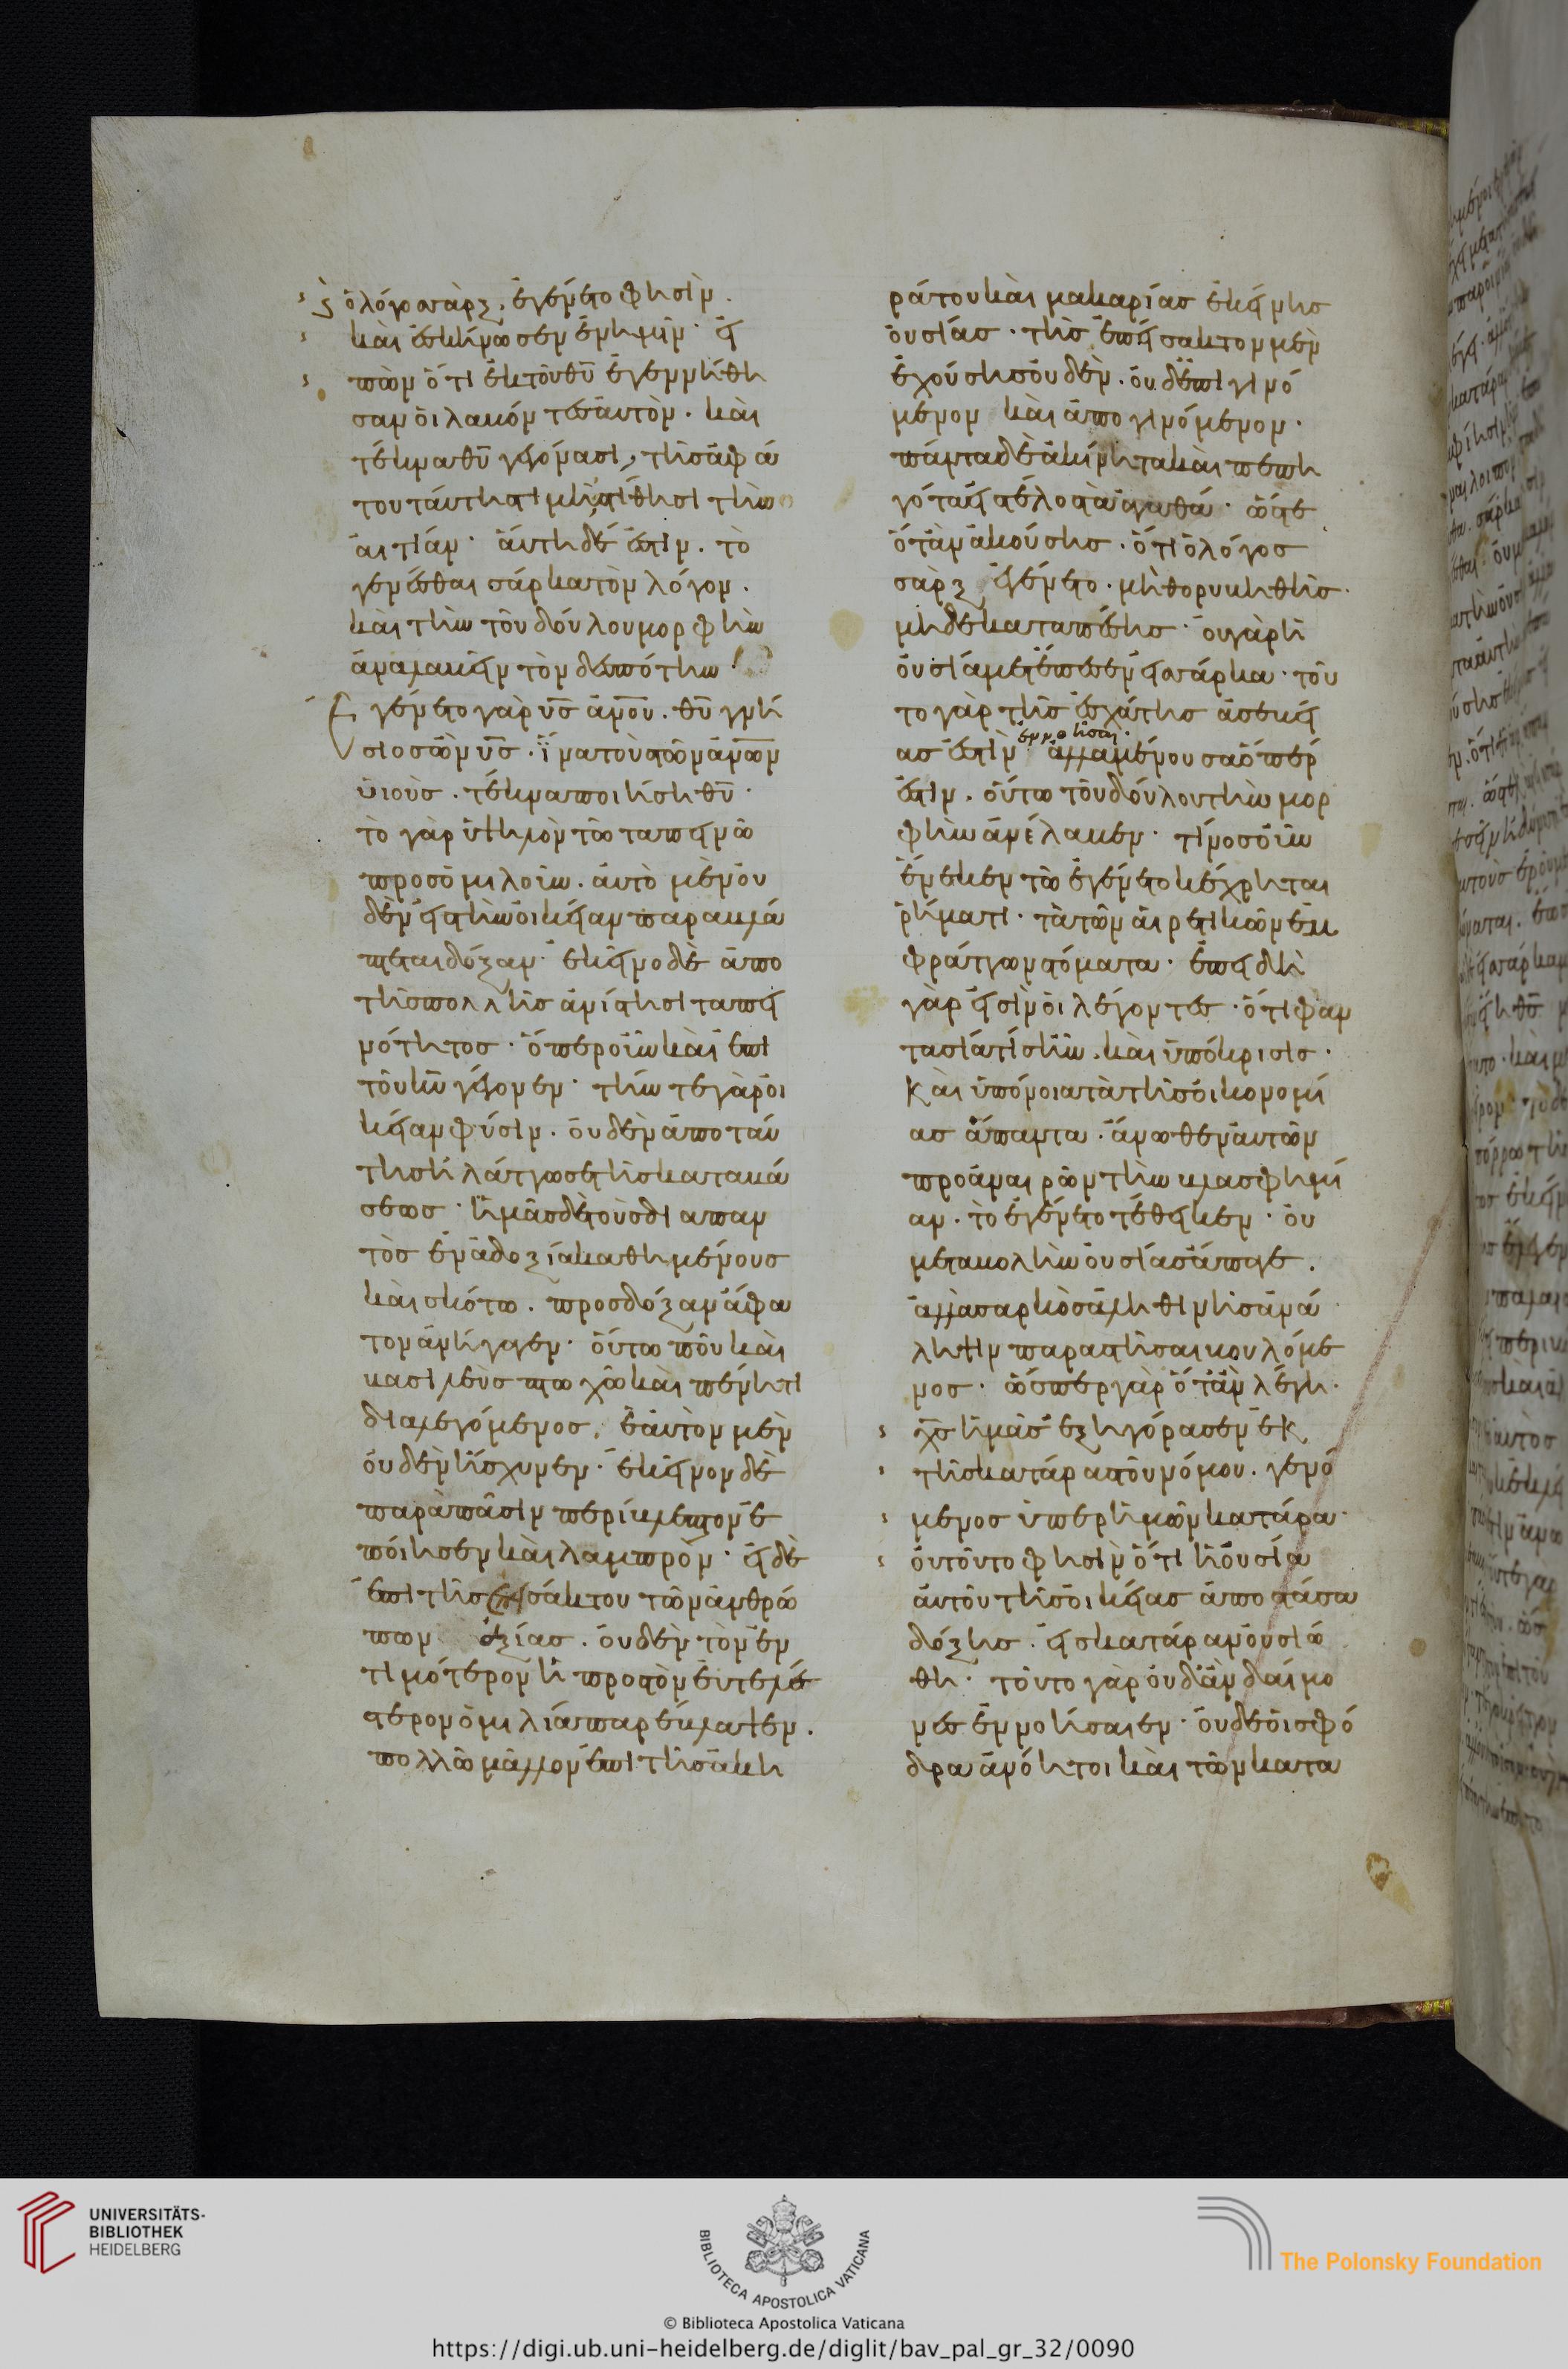 ς ὁ λόγοσ σὰρξ. ἐγένετο φησὶν.
καὶ ἐσκήνωσεν ἐν ἡμῖν· εἰ
πὼν ὅτι ἐκ τοῦ θῦ ἐγεννήθη
σαν οἱ λαβόντεσ αὐτὸν. καὶ
τέκνα θῦ γεγόνασι, τῆσ ἀφά
του ταύτησ τιμῆσ τίθησι τὴν
αἰτίαν· αὕτη δέ ἐστιν. τὸ
γενέσθαι σάρκα τὸν λόγον.
καὶ τὴν τοῦ δούλου μορφὴν
ἀναλαβεῖν τὸν δεσπότην
Ἐγένετο γὰρ υ̅σ̅ α̅ν̅ο̅υ̅. θῦ γνή
σιοσ ὢν υ̅σ̅. ἵ̈να τοὺσ τῶν α̅ν̅ω̅ν̅
υἱοὺσ. τέκνα ποιήσῃ θῦ·
τὸ γὰρ ὑψηλὸν τῶ ταπεινῶ
προσομιλοῦν. αὐτὸ μὲν οὐ
δὲν εἰσ τὴν οἰκείαν παραβλά
πτεται δόξαν· ἐκεῖνο δὲ ἀπὸ
τῆσ πολλῆσ ἀνίστησι ταπει
νότητοσ· ὅπερ οὖν καὶ ἐπὶ
τοῦ κῦ γέγονεν· τήν τε γὰρ οἰ
κείαν φύσιν. οὐδὲν ἀπὸ ταύ
τησ ἠλάττωσε τῆσ καταβά
σεωσ· ἡμᾶσ δὲ τοὺσ διαπαν
τὸσ ἐν ἀδοξία καθημένουσ
καὶ σκότω. πρὸσ δόξαν ἄφα
τον ἀνήγαγεν· οὕτω που καὶ
βασιλεὺσ πτωχῶ καὶ πένητι
διαλεγόμενοσ, ἑαυτὸν μὲν
οὐδὲν ἤσχυνεν· ἐκεῖνον δὲ
παρὰ πᾶσιν περίβλεπτον ἐ
ποίησεν καὶ λαμπρὸν· εἰ δὲ
ἐπὶ τῆσ ἐπεισάκτου τῶν ἀνθρώ
πων ἀξίασ. οὐδὲν τὸν ἐν
τιμότερον ἡ πρὸσ τὸν εὐτελέ
στερον ὁμιλία παρέβλαψεν.
πολλῶ μᾶλλον ἐπὶ τῆσ ἀκη
ράτου καὶ μακαρίασ ἐκείνησ
οὐσίασ. τῆσ ἐπείσακτον μὲν
ἐχούσησ οὐδὲν. οὐδὲ ἐπιγινό
μενον καὶ ἀπογινόμενον.
πάντα δὲ ἀκίνητα καὶ πεπη
γότα εἰσ τέλοσ τὰ ἀγαθά· ὥστε
ὅτἂν ἀκούσησ. ὅτι ὁ λόγοσ
σὰρξ ἐγένετο. μὴ θορυβηθῆσ.
μηδὲ καταπέσησ· οὐ γὰρ ἡ
οὐσία μετέπεσεν εἰσ σάρκα. τοῦ
το γὰρ τῆσ ἐσχάτησ ἀσεβεί
ασ ἐστὶν ἐννοῆσαι· ἀλλὰ μένουσα ὅπερ
ἐστιν. οὕτω τοῦ δούλου τὴν μορ
φὴν ἀνέλαβεν· τίνοσ οὖν
ἕνεκεν τῶ ἐγένετο κέχρηται
ῥήματι· τὰ τῶν αἱρετικῶν ἐμ
φράττων στόματα· ἐπειδὴ
γὰρ εἰσὶν οἱ λέγοντεσ. ὅτι φαν
τασία τίσ ἦν. καὶ ὑπόκρισισ.
Καὶ ὑπόνοια τὰ τῆσ οἰκονομί
ασ ἅπαντα. ἄνωθεν αὐτῶν
προαναιρῶν τὴν βλασφημί
αν. τὸ ἐγένετο τέθεικεν· οὐ
μεταβολὴν οὐσίασ ἄπαγε.
ἀλλὰ σαρκὸσ ἀληθινῆσ ἀνά
ληψιν παραστῆσαι βουλόμε
νοσ. ὥσπερ γὰρ ὅτἂν λέγη.
χ̅σ̅ ἡμᾶσ ἐξηγόρασεν ἐκ
τῆσ κατάρασ τοῦ νόμου. γενό
μενοσ ὑπὲρ ἡμῶν κατάρα.
οὐ τοῦτο φησὶν ὅτι ἡ οὐσία
αὐτοῦ τῆσ οἰκείασ ἀποστάσα
δόξησ. εἰσ κατάραν οὐσιώ
θη· τοῦτο γὰρ οὐδ᾽ ἂν δαίμο
νεσ ἐννοήσαιεν. οὐδὲ οἱ σφό
δρα ἀνόητοι καὶ τῶν κατα
UNIVERSITÄTS-
BIBLIOTHEK
HEIDELBERG
BIBLIOTECA APOSTOLICA VATICANA
The Polonsky Foundation
© Biblioteca Apostolica Vaticana
https://digi.ub.uni-heidelberg.de/diglit/bav_pal_gr_32/0090